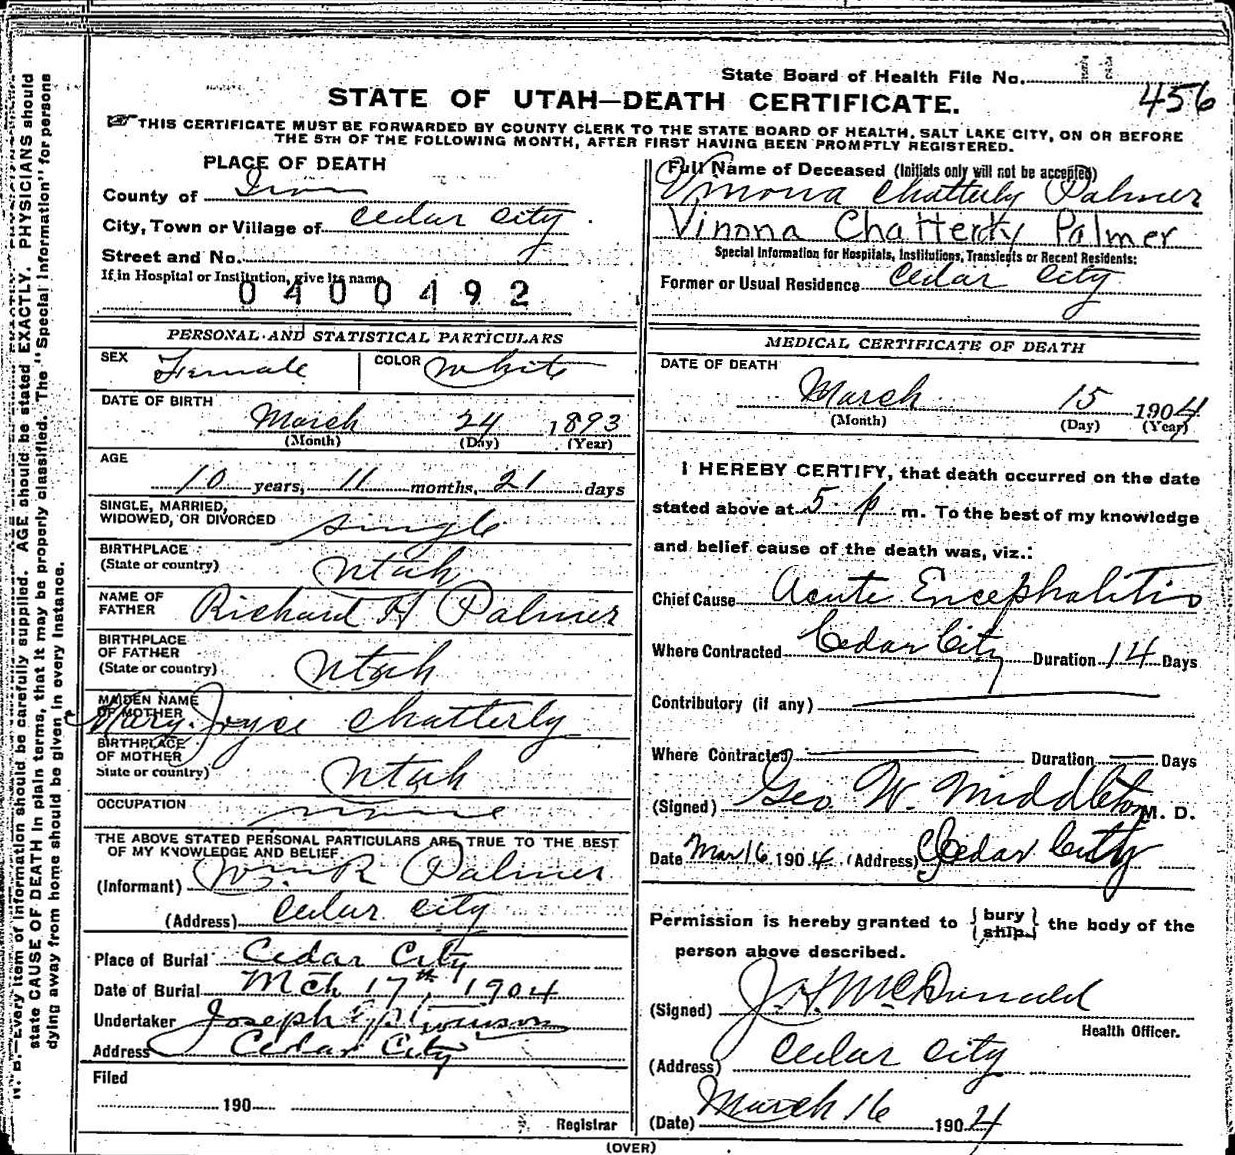 State Board of Health File No.
456
STATE OF UTAH—DEATH CERTIFICATE.
THIS CERTIFICATE MUST BE FORWARDED BY COUNTY CLERK TO THE STATE BOARD OF HEALTH, SALT LAKE CITY, ON OR BEFORE
THE 5TH OF THE FOLLOWING MONTH, AFTER FIRST HAVING BEEN PROMPTLY REGISTERED.
PLACE OF DEATH
County of Iron
City, Town or Village of Cedar City.
Street and No.
If in Hospital or Institution, give its name
0400492
PERSONAL AND STATISTICAL PARTICULARS
SEX Female COLOR White
DATE OF BIRTH
March 24 1893
(Month) (Day) (Year)
AGE
10 years, 11 months, 21 days
SINGLE, MARRIED,
WIDOWED, OR DIVORCED single
BIRTHPLACE
(State or country) Utah
NAME OF
FATHER Richard H Palmer
BIRTHPLACE
OF FATHER
(State or country) Utah
MAIDEN NAME
OF MOTHER
Mary Joyce Chatterly
BIRTHPLACE
OF MOTHER
State or country) Utah
OCCUPATION none
THE ABOVE STATED PERSONAL PARTICULARS ARE TRUE TO THE BEST
OF MY KNOWLEDGE AND BELIEF
(Informant) Wm R Palmer
(Address) Cedar City
Place of Burial Cedar City
Date of Burial Mch 17th, 1904
Undertaker Joseph
Address Cedar City
Filed
190
Registrar
Full Name of Deceased (Initials only will not be accepted)
Vinona Chatterly Palmer
Vinona Chatterly Palmer
Special Information for Hospitals, Institutions, Transients or Recent Residents:
Former or Usual Residence Cedar City
MEDICAL CERTIFICATE OF DEATH
DATE OF DEATH
March 15 1904
(Month) (Day) (Year)
I HEREBY CERTIFY, that death occurred on the date
stated above at 5 p m. To the best of my knowledge
and belief cause of the death was, viz.:
Chief Cause Acute Encephalitis
Where Contracted Cedar City Duration 14 Days
Contributory (if any)
Where Contracted Duration Days
(Signed) Geo. W. Middleton M. D.
Date Mar 16 1904 (Address) Cedar City
Permission is hereby granted to {bury ship} the body of the
person above described.
(Signed) J. H. McDonald
Health Officer.
(Address) Cedar City
(Date) March 16 1904
(OVER)
N. B.—Every item of information should be carefully supplied. AGE should be stated EXACTLY. PHYSICIANS should
state CAUSE OF DEATH in plain terms, that it may be properly classified. The "Special Information" for persons
dying away from home should be given in every instance.